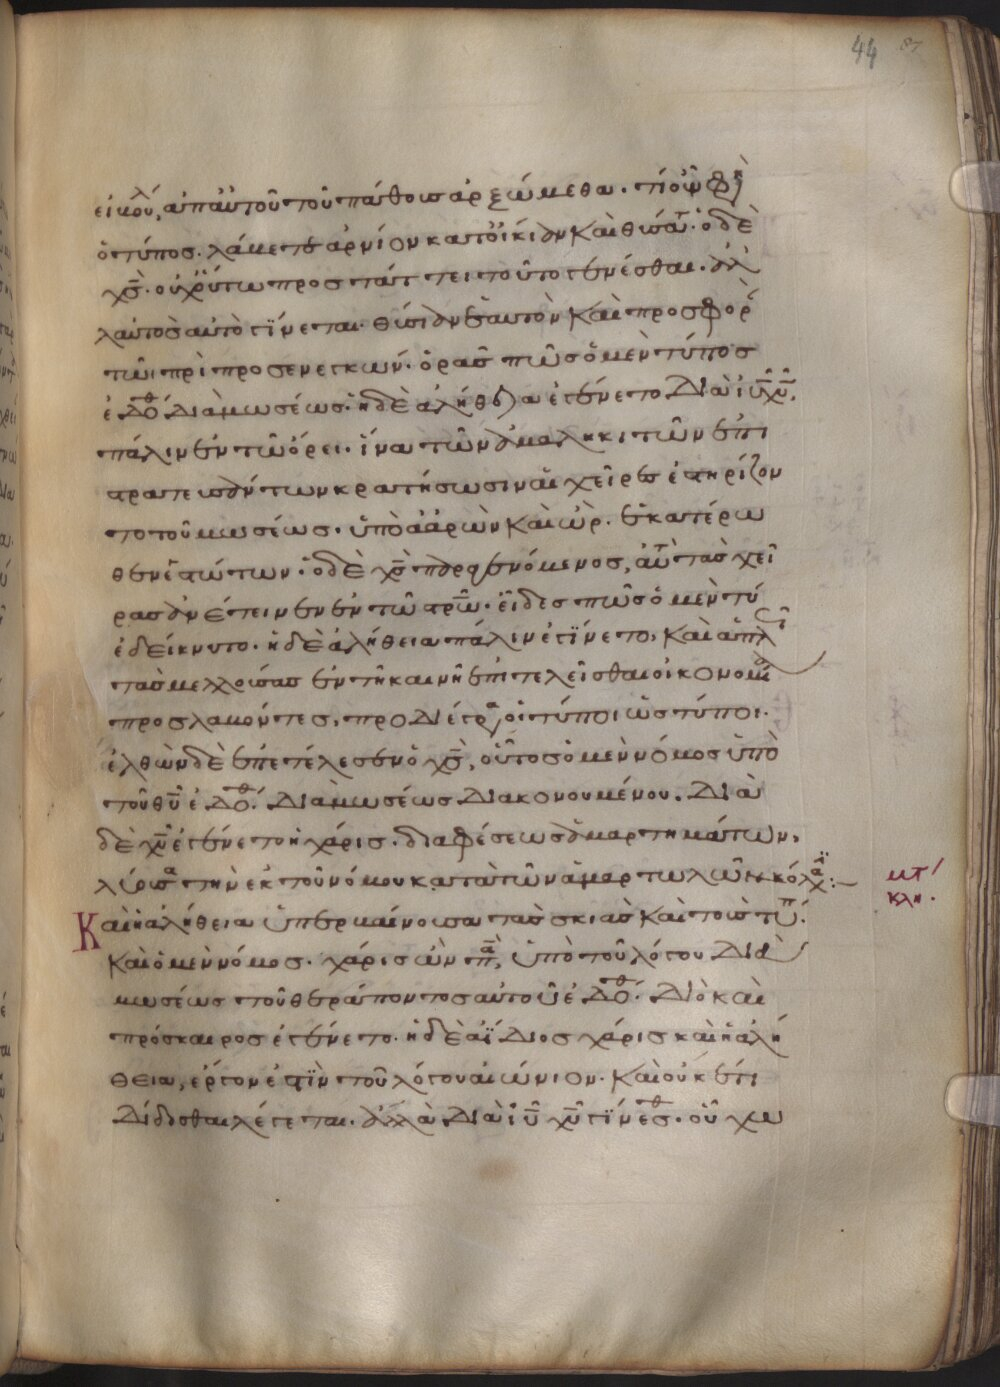 44 87
εἰκοῦ, ἀπ αὐτοῦ τοῦ πάθους ἀρξώμεθα. τί οὖν φη
ὁ τύπος. λάβετε ἀρνίον κατ οἰκίαν καὶ θύσατ. ὁ δὲ
χς. οὐχ οὕτω προστάττει τοῦτο γενέσθαι. ἀλ
λ αὐτὸς αὐτὸ γίνεται. θύσιαν ἑαυτὸν καὶ προσφορ
τῶ πρὶ προσενεγκών. ὁρᾶς πῶς ὁ μὲν τύπος
ἐδόθ διὰ μωσέως. ἡ δὲ ἀλήθεια ἐγένετο διὰ ιυ χυ.
πάλιν ἐν τῶ ὄρει. ἵνα τῶν ἀμαληκιτῶν ἐπι
στρατευσάντων κρατήσωσιν αἱ χεῖρες ἐστηρίζον
το τοῦ μωσέως. ὑπὸ ἀαρὼν καὶ ὢρ. ἑκατέρω
θεν ἑστώτων. ὁ δὲ χς παραγενόμενος, αὐτ τὰς χεῖ
ρας ἀνέτεινεν ἐν τῶ στρω. εἶδες πῶς ὁ μὲν τύ
ἐδείκνυτο. ἡ δὲ ἀλήθεια πάλιν ἐγίνετο, καὶ ἁπλ
τὰς μελλούσας ἐν τῆ καινῆ ἐπιτελεῖσθαι οἰκονομ
προσλαβόντες, προδιέγρ οἱ τύποι ὡς τύποι.
ἐλθὼν δὲ ἐπετέλεσεν ὁ χς, οὗτος ὁ μὲν νόμος ὑπὸ
τοῦ θυ ἐδόθ. διὰ μωσέως διακονουμένου. διὰ
δὲ χυ ἐγένετο ἡ χάρις. δι ἀφέσεως ἁμαρτημάτων,
λύσασα τὴν ἐκ τοῦ νόμου κατὰ τῶν ἁμαρτωλῶν κόλα:
Καὶ ἡ ἀλήθεια ὑπερβαίνουσα τὰς σκιὰς καὶ τοὺς τυπ.
καὶ ὁ μὲν νόμος. χάρις ὢν πα, ὑπὸ τοῦ λόγου διὰ
μωσέως τοῦ θεράποντος αὐτοῦ ἐδόθ. διὸ καὶ
πρόσκαιρος ἐγένετο. ἡ δὲ ἀΐδιος χάρις καὶ ἡ ἀλή
θεια, ἔργον ἐστὶν τοῦ λόγου αἰώνιον. καὶ οὐκ ἔτι
δίδοσθαι λέγεται. ἀλλὰ διὰ ιυ χυ γίνεσθ. οὗ χω